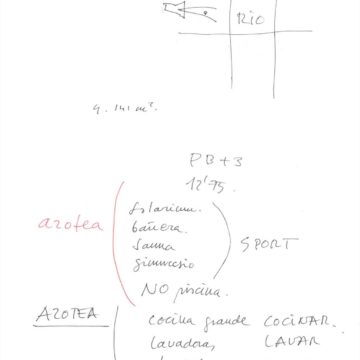 RIO
9.141 m².
PB+3
12'75.
solarium.
bañera.
azotea
sauna
SPORT
gimnasio
NO piscina.
AZOTEA
cocina grande COCINAR.
lavadoras, LAVAR